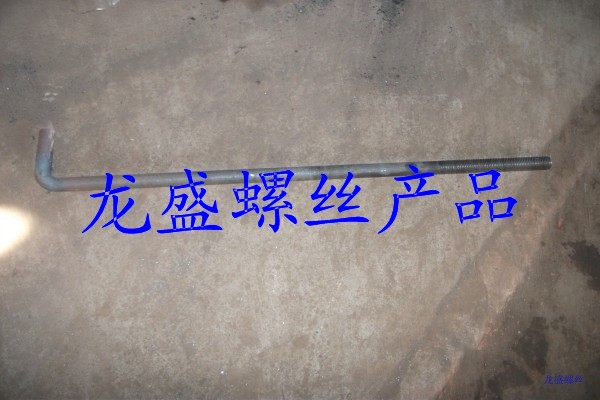 龙盛螺丝产品
龙盛螺丝